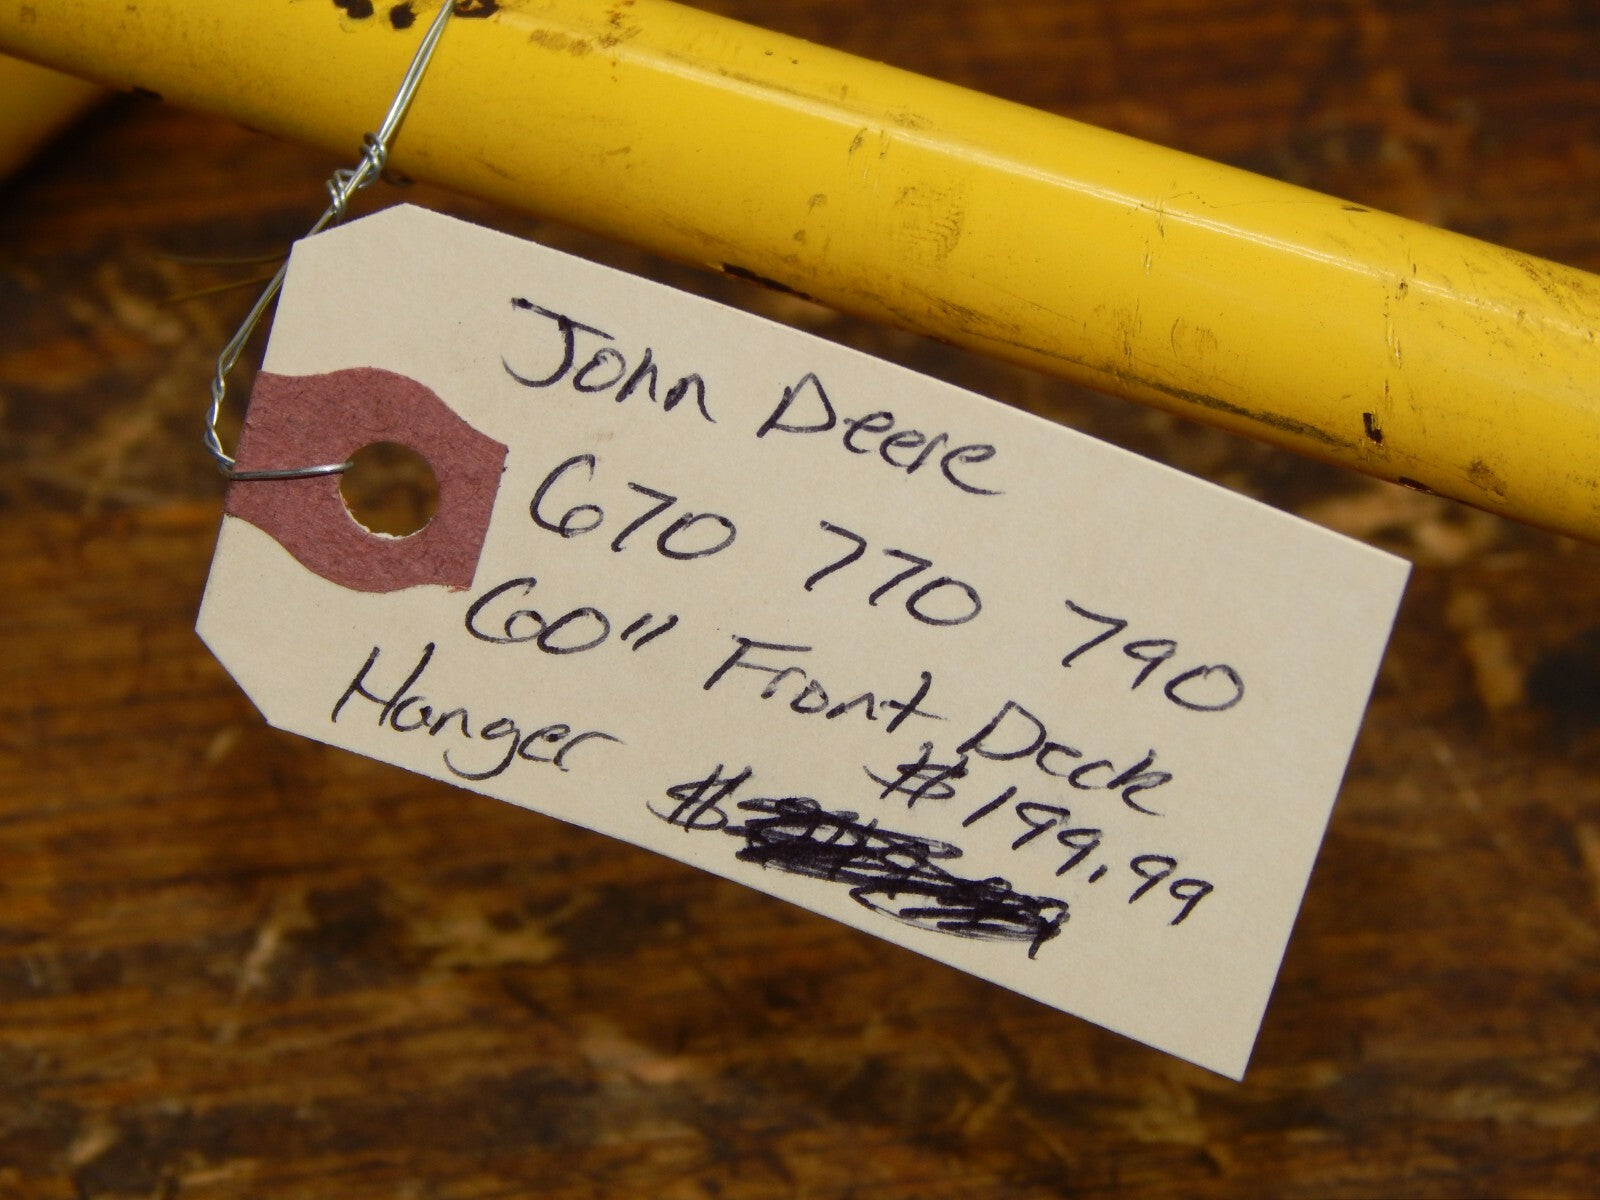 John Deere
670 770 790
60" Front Deck
Hanger
$199.99
$